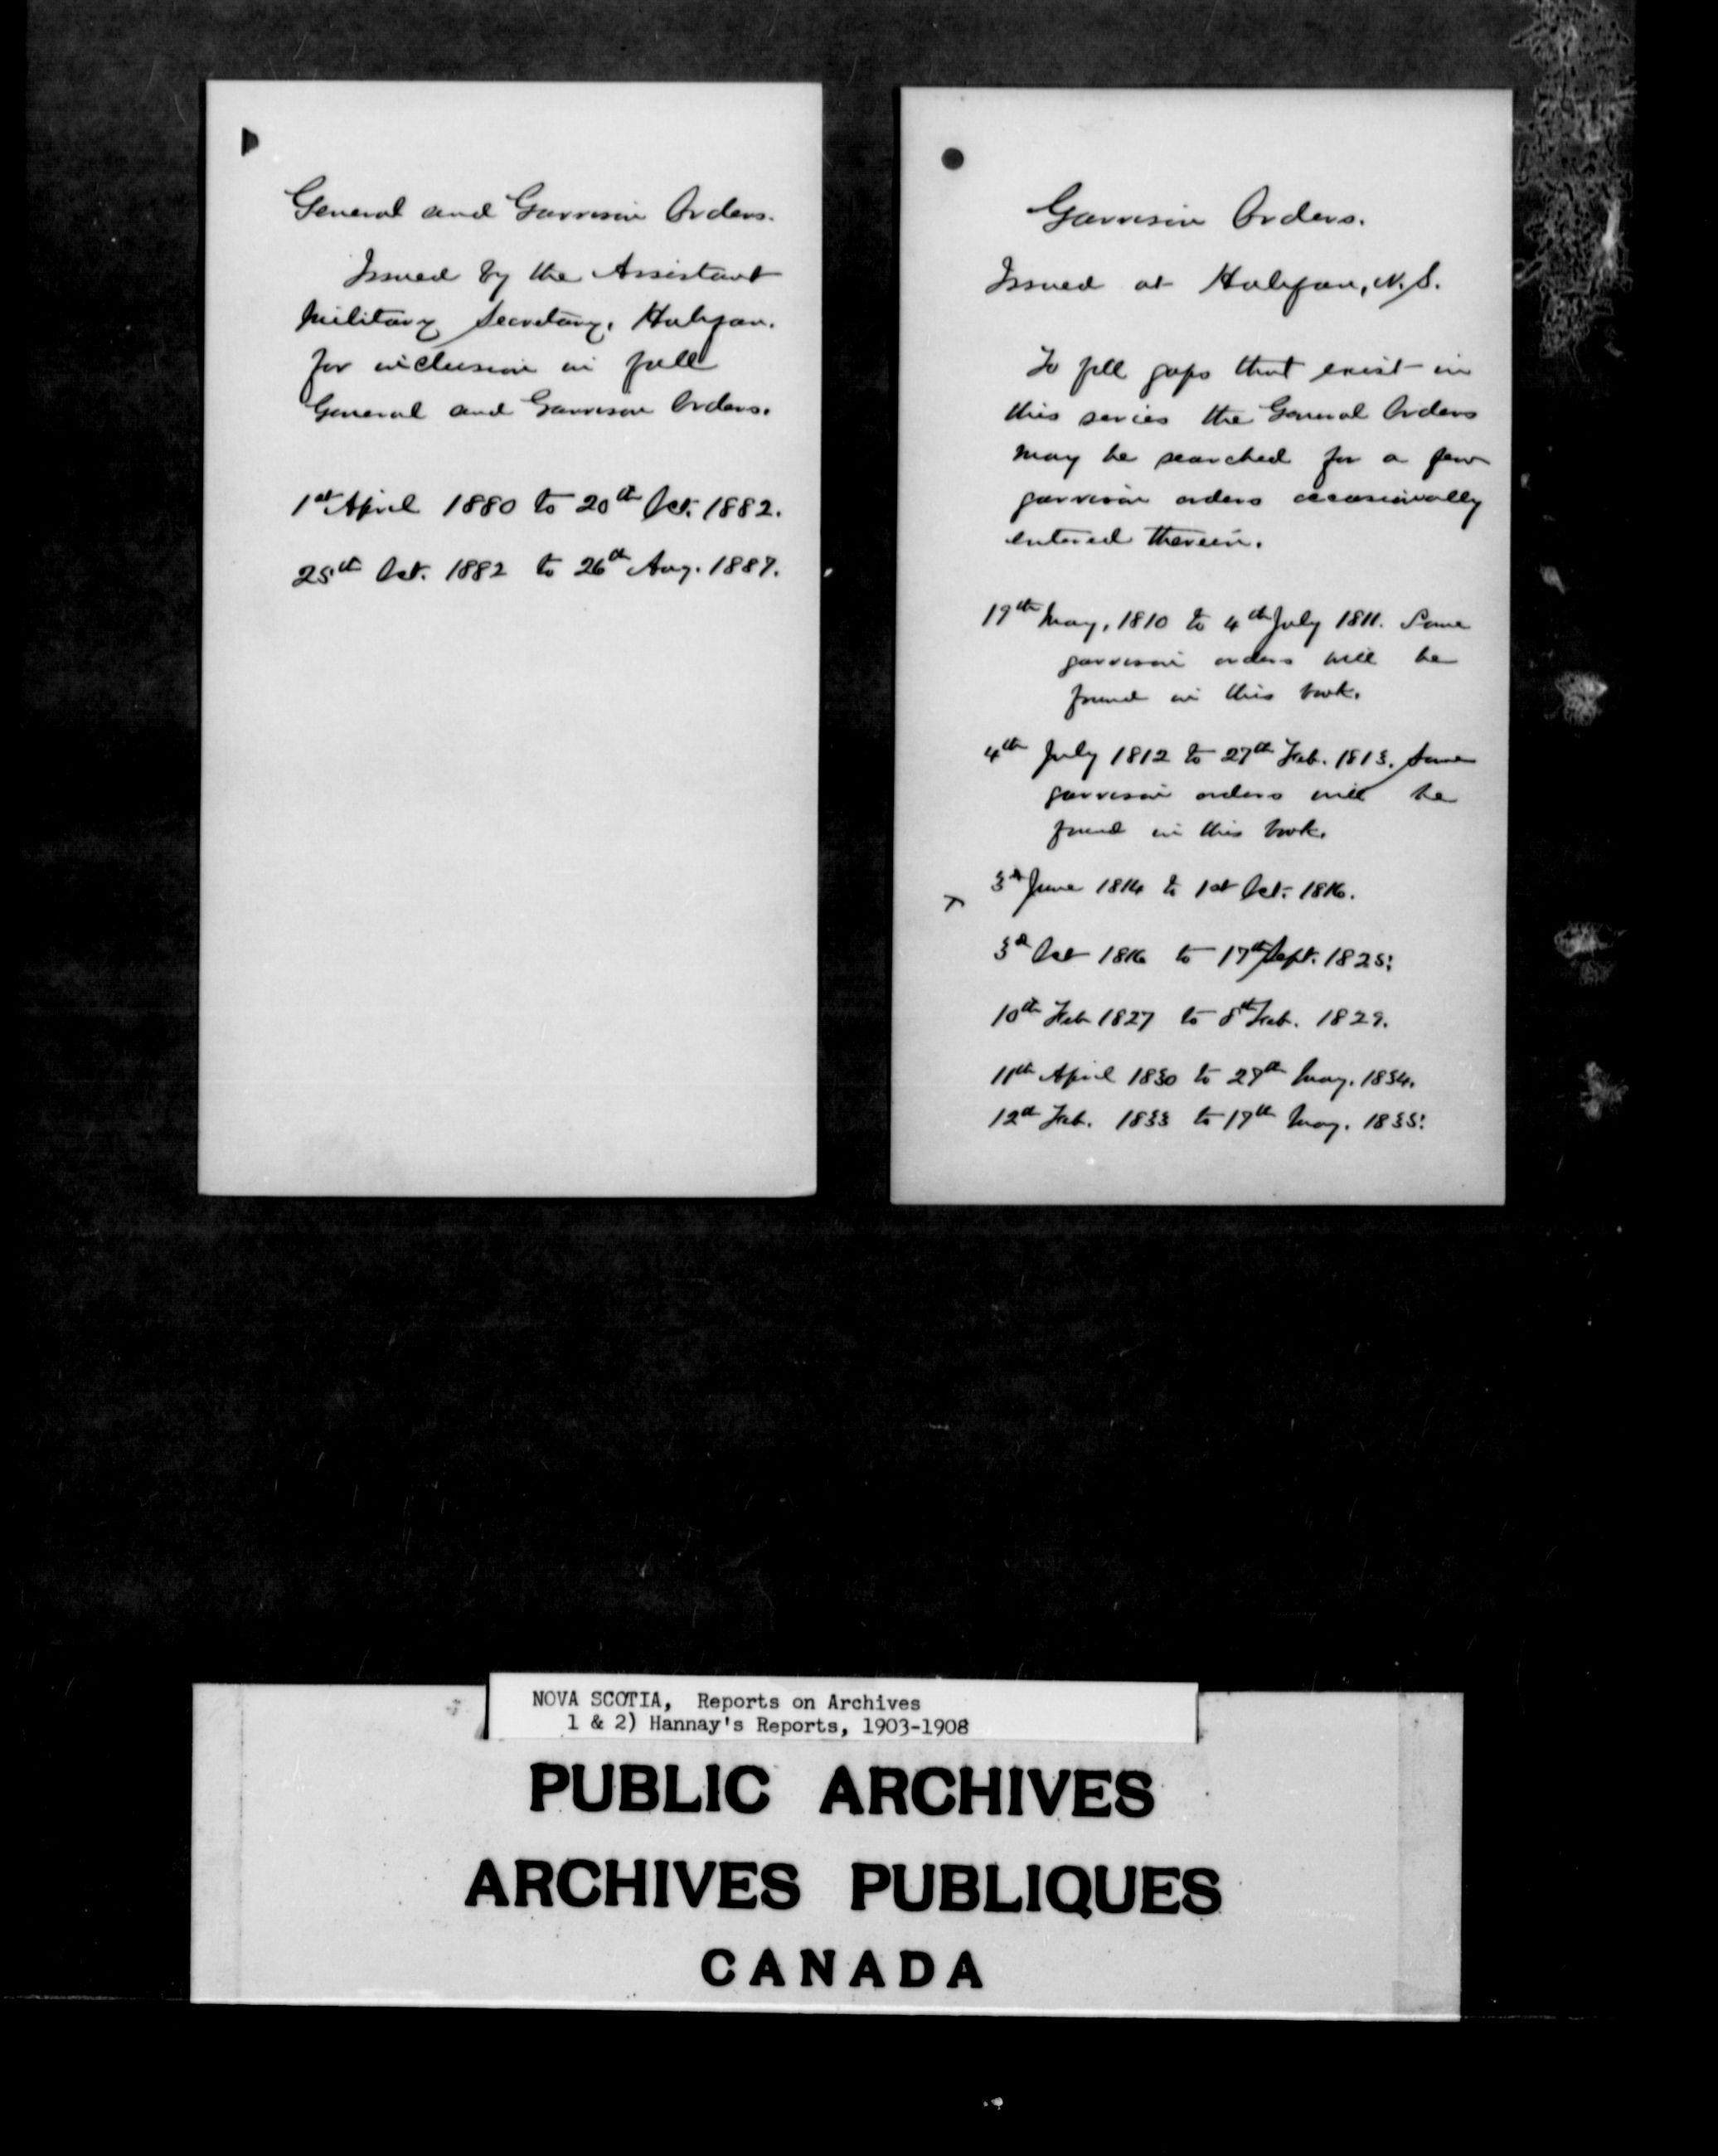 General and Garrison Orders.
Issued by the Assistant
Military Secretary, Halifax.
for inclusion in full
General and Garrison Orders.
1st April 1880 to 20th Oct. 1882.
25th Oct. 1882 to 26th Aug. 1887.
Garrison Orders.
Issued at Halifax, N.S.
To fill gaps that exist in
this series the General Orders
may be searched for a few
garrison orders occasionally
entered therein.
19th May, 1810 to 4th July 1811. Some
garrison orders will be
found in this book.
4th July 1812 to 27th Feb. 1813. Some
garrison orders will be
found in this book.
3d June 1814 to 1st Oct. 1816.
3d Oct 1816 to 17th Sept. 1825.
10th Feb 1827 to 8th Feb. 1829.
11th April 1830 to 29th May. 1834.
12th Feb. 1833 to 19th May. 1835.
NOVA SCOTIA, Reports on Archives
1 & 2) Hannay's Reports, 1903-1908
PUBLIC ARCHIVES
ARCHIVES PUBLIQUES
CANADA